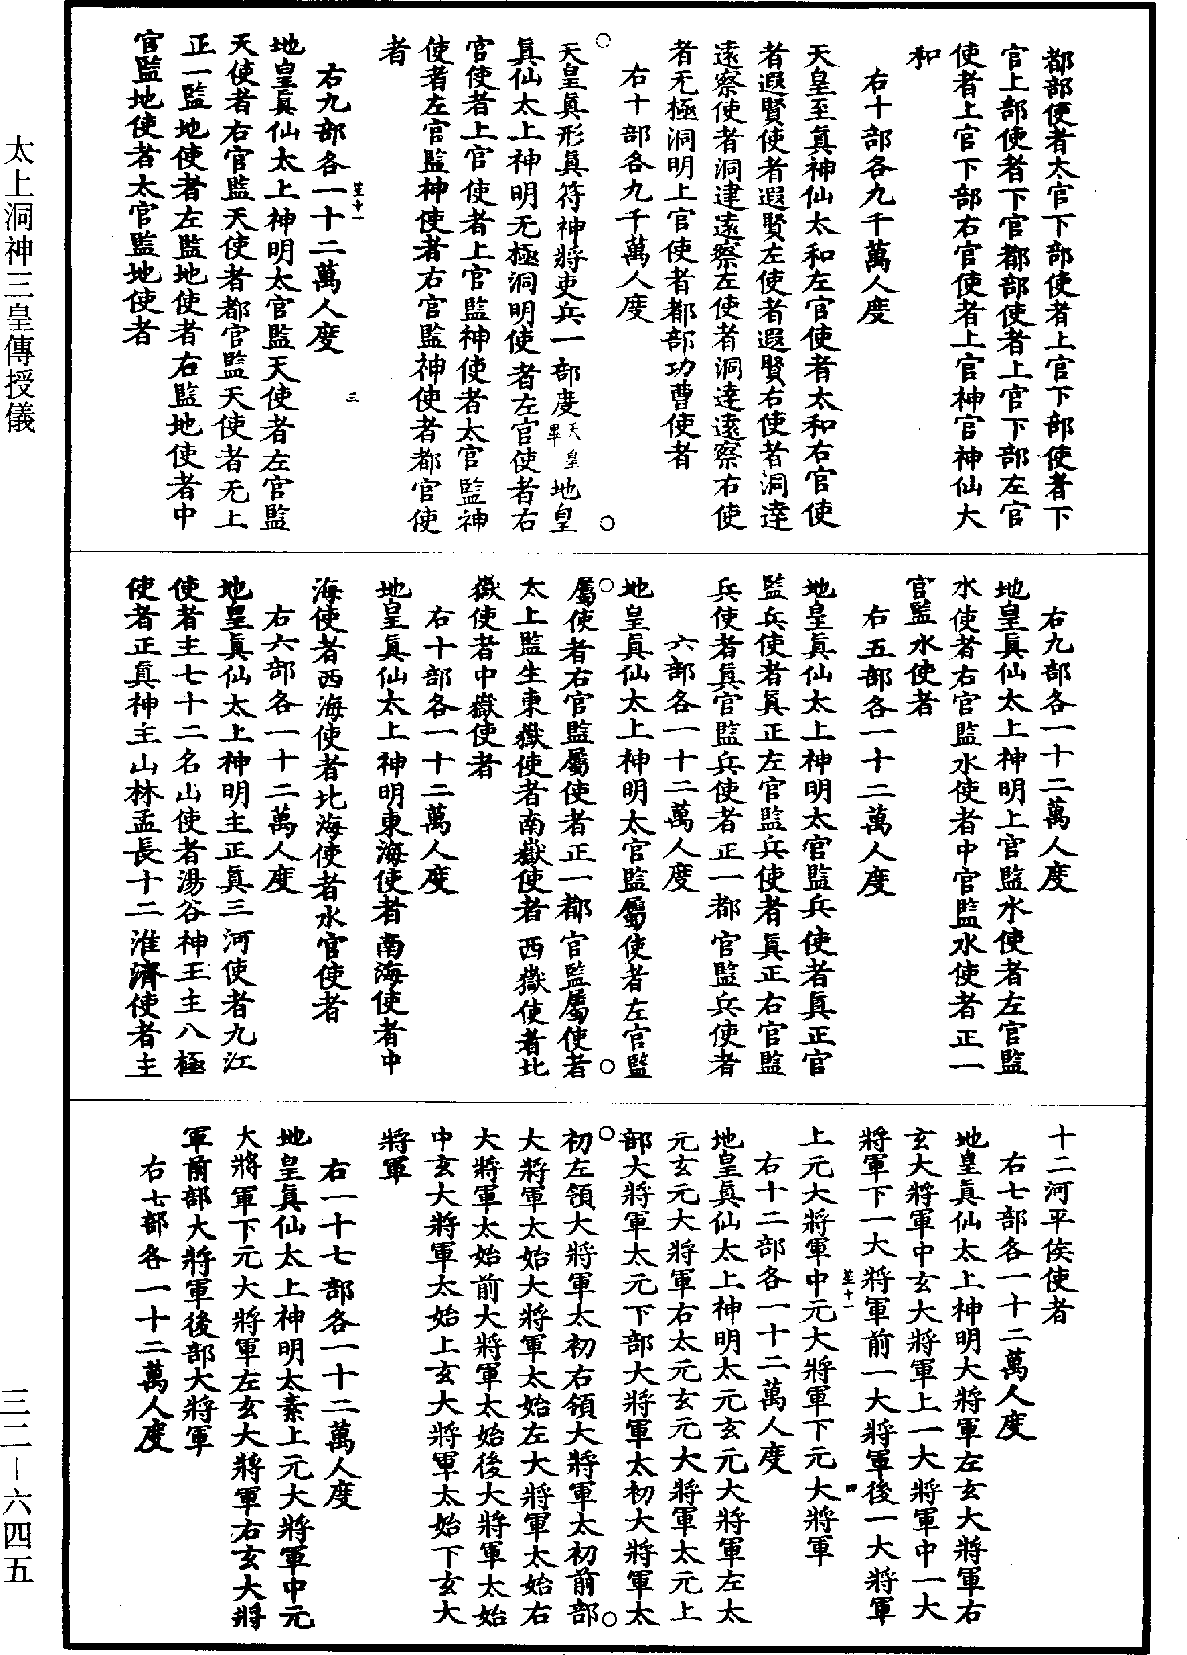 都部使者太官下部使者上官下部使者下
官上部使者下官都部使者上官下部左官
使者上官下部右官使者上官神官神仙大
和
右十部各九千萬人度
天皇至眞神仙太和左官使者太和右官使
者遐賢使者遐賢左使者遐賢右使者洞達
遠察使者洞達遠察左使者洞達遠察右使
者无極洞明上官使者都部功曹使者
右十部各九千萬人度
天皇眞形眞符神將吏兵一部度天皇畢地皇
眞仙太上神明无極洞明使者左官使者右
官使者上官使者上官監神使者太官監神
使者左官監神使者右官監神使者都官使
者
右九部各一十二萬人度
三
地皇眞仙太上神明太官監天使者左官監
天使者右官監天使者都官監天使者无上
正一監地使者左監地使者右監地使者中
官監地使者太官監地使者
右九部各一十二萬人度
地皇眞仙太上神明上官監水使者左官監
水使者右官監水使者中官監水使者正一
官監水使者
右五部各一十二萬人度
地皇眞仙太上神明太官監兵使者眞正官
監兵使者眞正左官監兵使者眞正右官監
兵使者眞官監兵使者正一都官監兵使者
六部各一十二萬人度
地皇眞仙太上神明太官監屬使者左官監
屬使者右官監屬使者正一都官監屬使者
太上監生東嶽使者南嶽使者西嶽使者北
嶽使者中嶽使者
右十部各一十二萬人度
地皇眞仙太上神明東海使者南海使者中
海使者西海使者北海使者水官使者
右六部各一十二萬人度
地皇眞仙太上神明主正眞三河使者九江
使者主七十二名山使者湯谷神王主八極
使者正眞神主山林孟長十二淮濟使者主
十二河平侯使者
右七部各一十二萬人度
地皇眞仙太上神明大將軍左玄大將軍右
玄大將軍中玄大將軍上一大將軍中一大
將軍下一大將軍前一大將軍後一大將軍
四
上元大將軍中元大將軍下元大將軍
右十二部各一十二萬人度
地皇眞仙太上神明太元玄元大將軍左太
元玄元大將軍右太元玄元大將軍太元上
部大將軍太元下部大將軍太初大將軍太
初左領大將軍太初右領大將軍太初前部
大將軍太始大將軍太始左大將軍太始右
大將軍太始前大將軍太始後大將軍太始
中玄大將軍太始上玄大將軍太始下玄大
將軍
右一十七部各一十二萬人度
地皇眞仙太上神明太素上元大將軍中元
大將軍下元大將軍左玄大將軍右玄大將
軍前部大將軍後部大將軍
右七部各一十二萬人度
太上洞神三皇傳授儀
三二－六四五